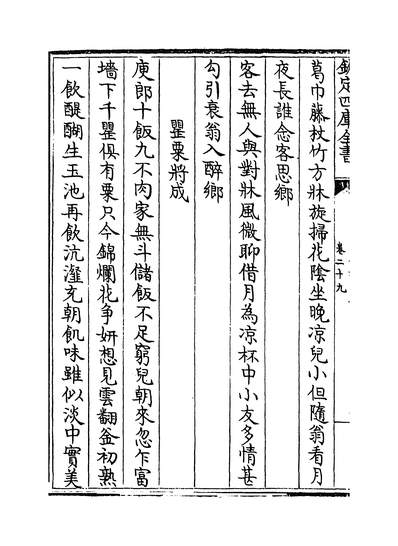 欽定四庫全書
卷二十九
葛巾藤杖竹方牀旋掃花陰坐晚凉兒小但隨翁看月
夜長誰念客思鄉
客去無人與對牀風微聊借月為凉杯中小友多情甚
勾引衰翁入醉鄉
罌粟將成
庾郎十飯九不肉家無斗儲飯不足窮兒朝來忽乍富
墻下千罌俱有粟只今錦爛花争妍想見雲翻釡初熟
一飲醍醐生玉池再飲沆瀣充朝飢味雖似淡中實美